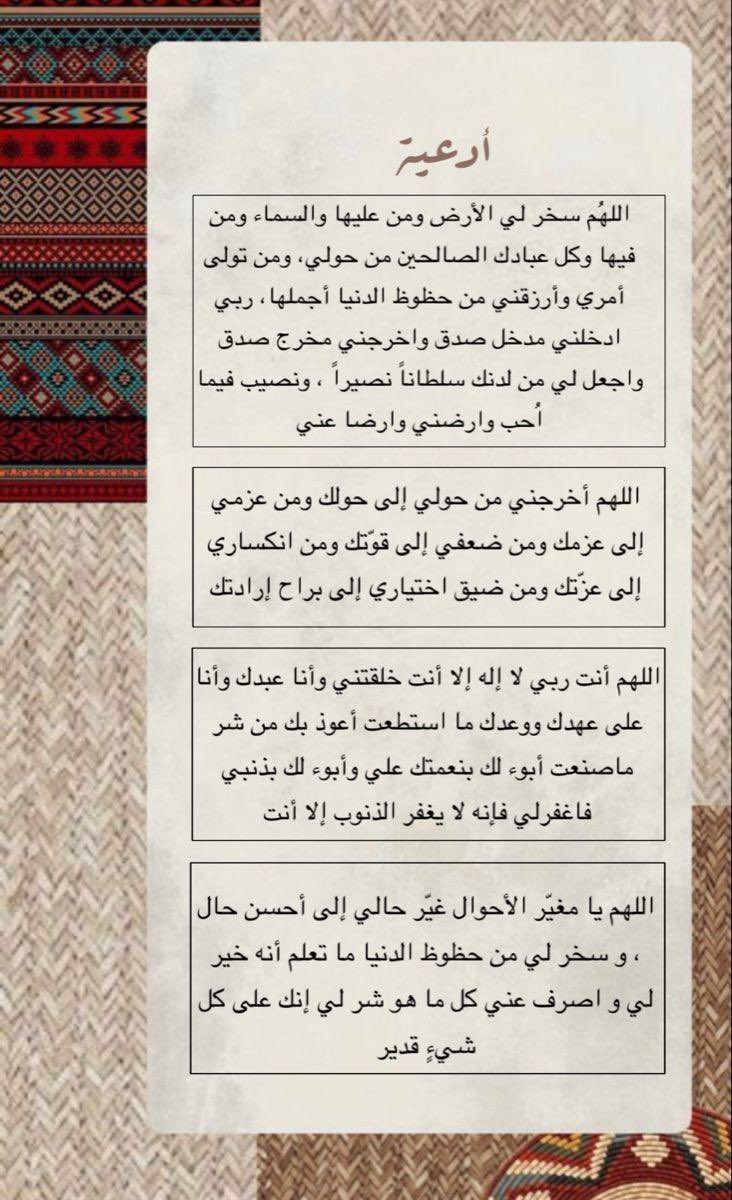 أدعية
اللهُم سخر لي الأرض ومن عليها والسماء ومن
فيها وكل عبادك الصالحين من حولي، ومن تولى
أمري وأرزقني من حظوظ الدنيا أجملها، ربي
ادخلني مدخل صدق واخرجني مخرج صدق
واجعل لي من لدنك سلطاناً نصيراً ، ونصيب فيما
اُحب وارضني وارضا عني
اللهم أخرجني من حولي إلى حولك ومن عزمي
إلى عزمك ومن ضعفي إلى قوّتك ومن انكساري
إلى عزّتك ومن ضيق اختياري إلى براح إرادتك
اللهم أنت ربي لا إله إلا أنت خلقتني وأنا عبدك وأنا
على عهدك ووعدك ما استطعت أعوذ بك من شر
ماصنعت أبوء لك بنعمتك علي وأبوء لك بذنبي
فاغفرلي فإنه لا يغفر الذنوب إلا أنت
اللهم يا مغيّر الأحوال غيّر حالي إلى أحسن حال
، و سخر لي من حظوظ الدنيا ما تعلم أنه خير
لي و اصرف عني كل ما هو شر لي إنك على كل
شيءٍ قدير